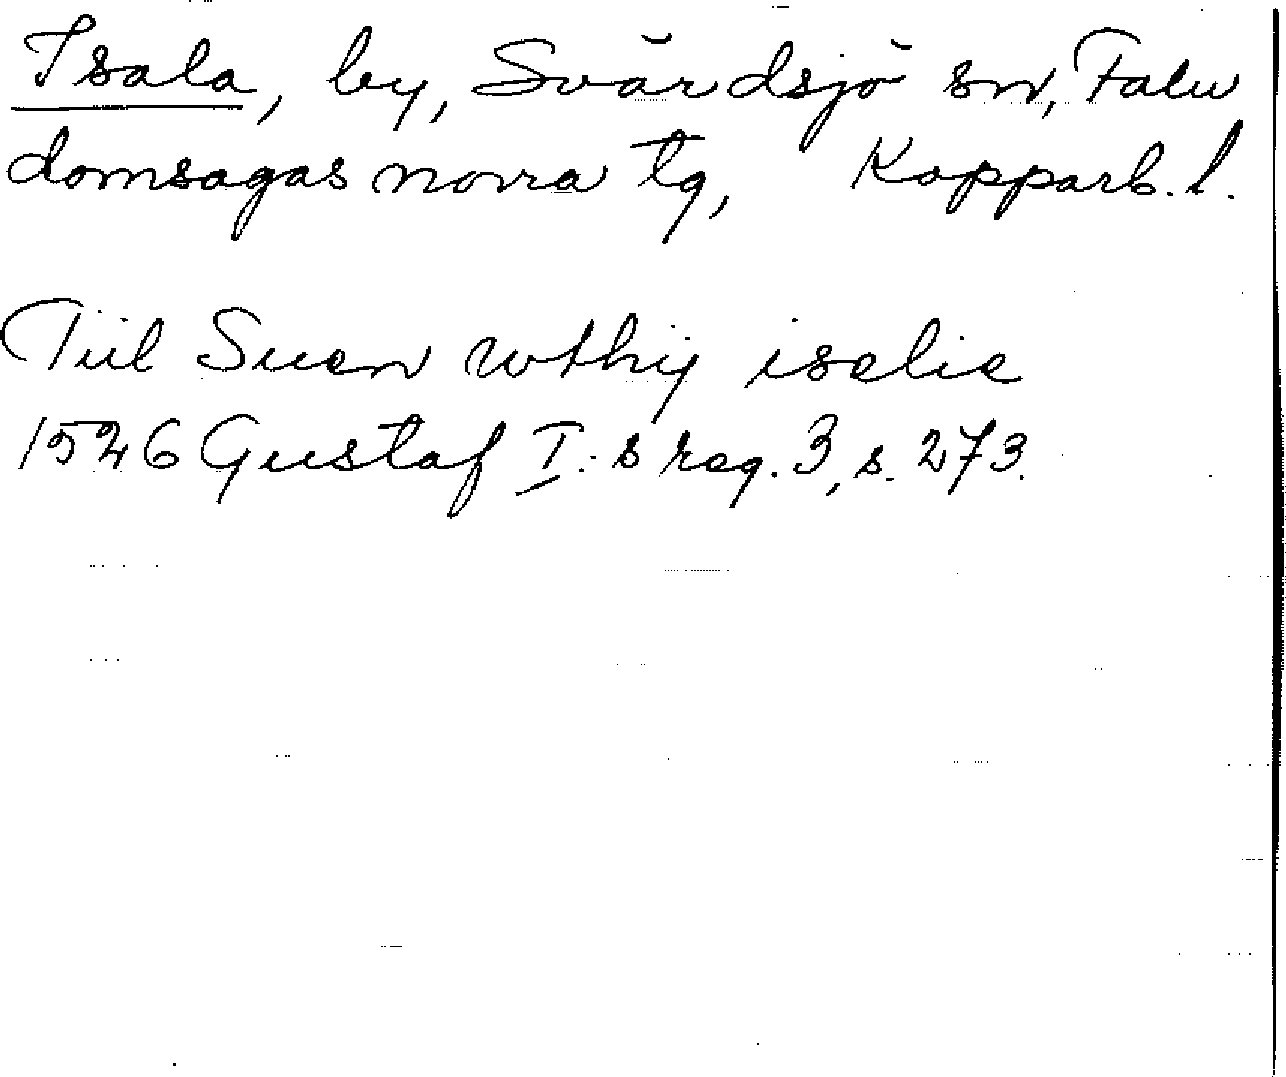 Isala, by, Svärdsjö sn, Falu
domsagas norra tg, Kopparb. l.
Till Suen wthij iselie
1526 Gustaf I:s reg. 3, s. 273.